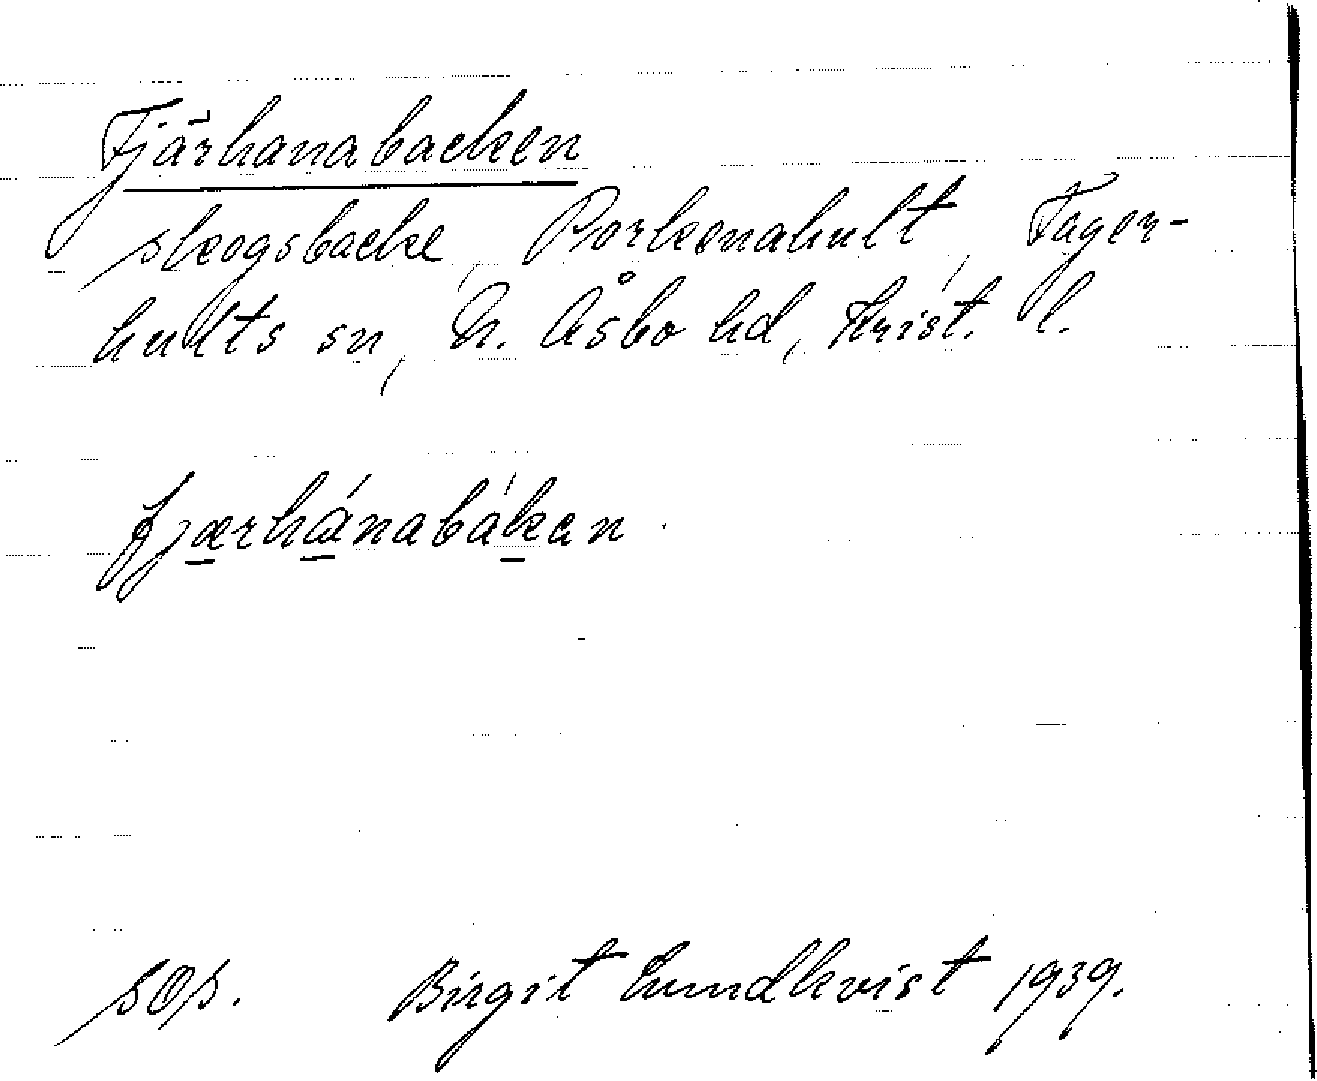 Fjärhanabacken
skogsbacke, Porkenahult, Fager-
hults sn, N. Åsbo hd, Krist. l.
fjærhánabákan.
sOp. Birgit Lundkvist 1939.